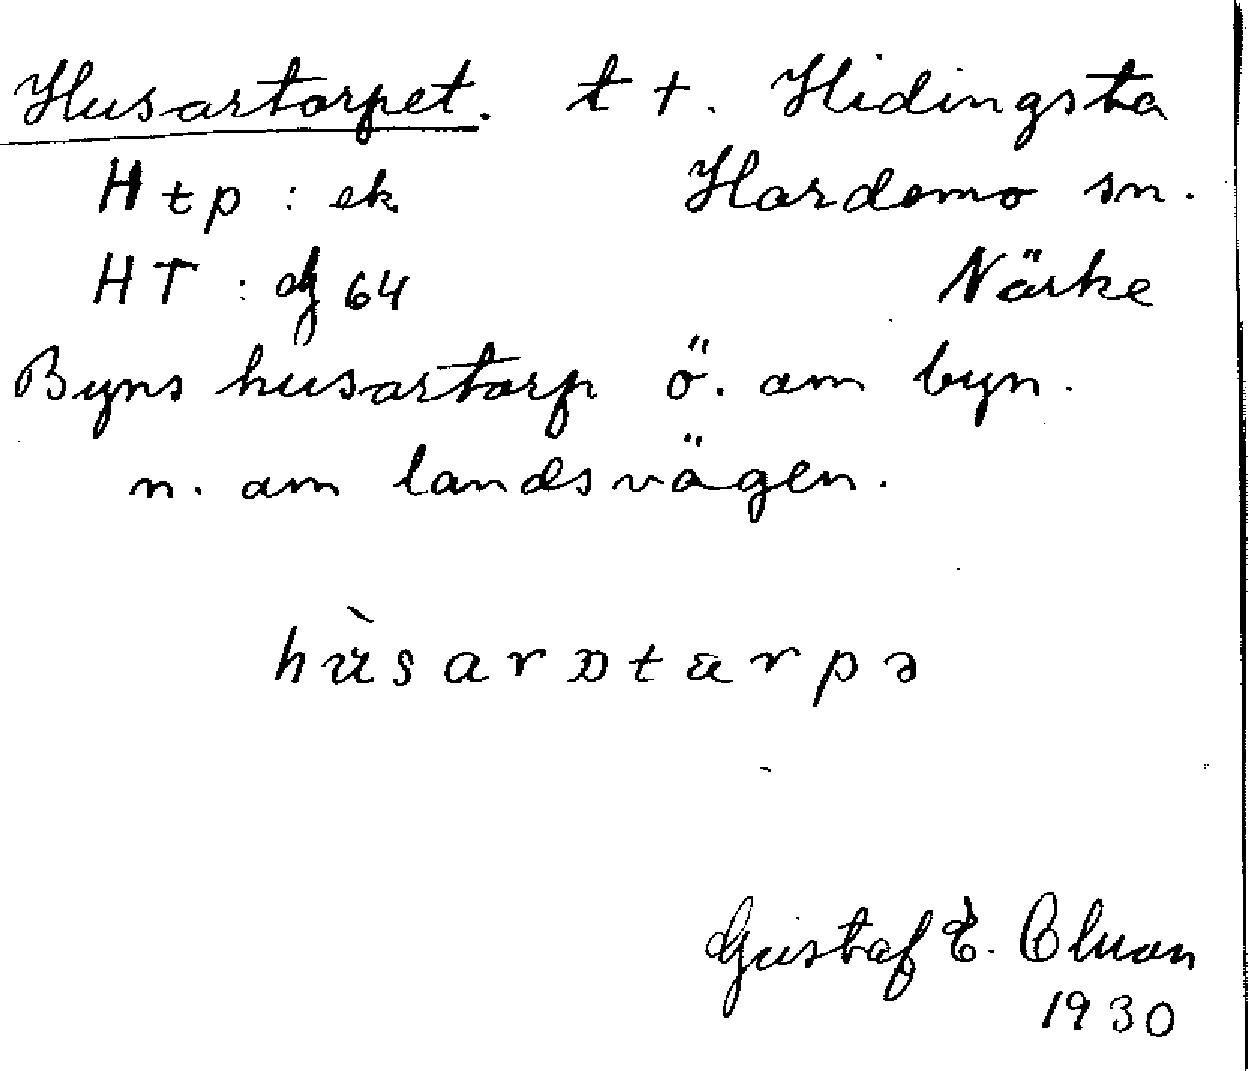 Husartorpet. t +. Hidingsta
Htp : ek Hardemo sn.
HT : dg 64 Närke
Byns husartorp ö. om byn.
n. om landsvägen.
Gustaf E.
1930